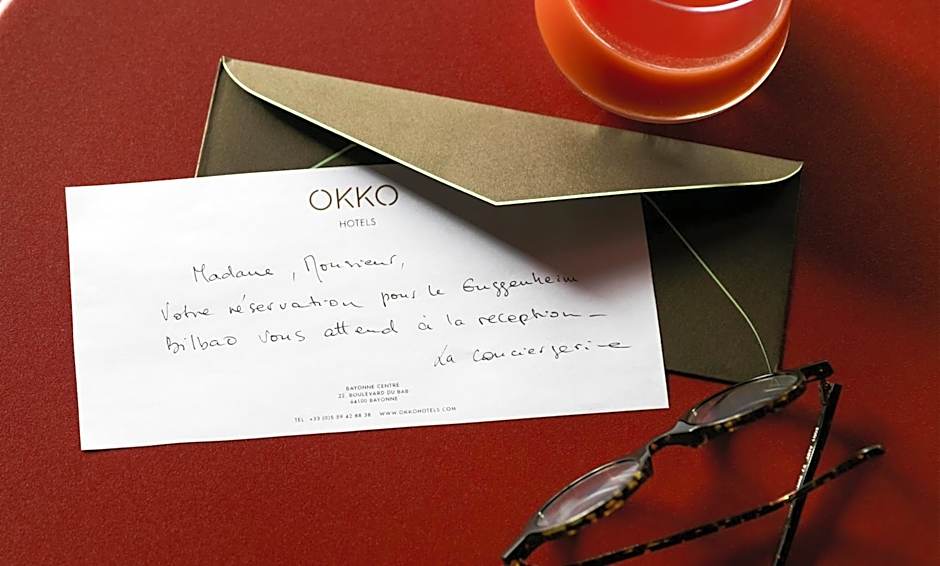 OKKO
HOTELS
Madame, Monsieur,
Votre réservation pour le Guggenheim
Bilbao vous attend à la reception –
La conciergerie
BAYONNE CENTRE
22, BOULEVARD DU BAB
64100 BAYONNE
TEL : +33 (0)5 59 42 88 38 WWW.OKKOHOTELS.COM